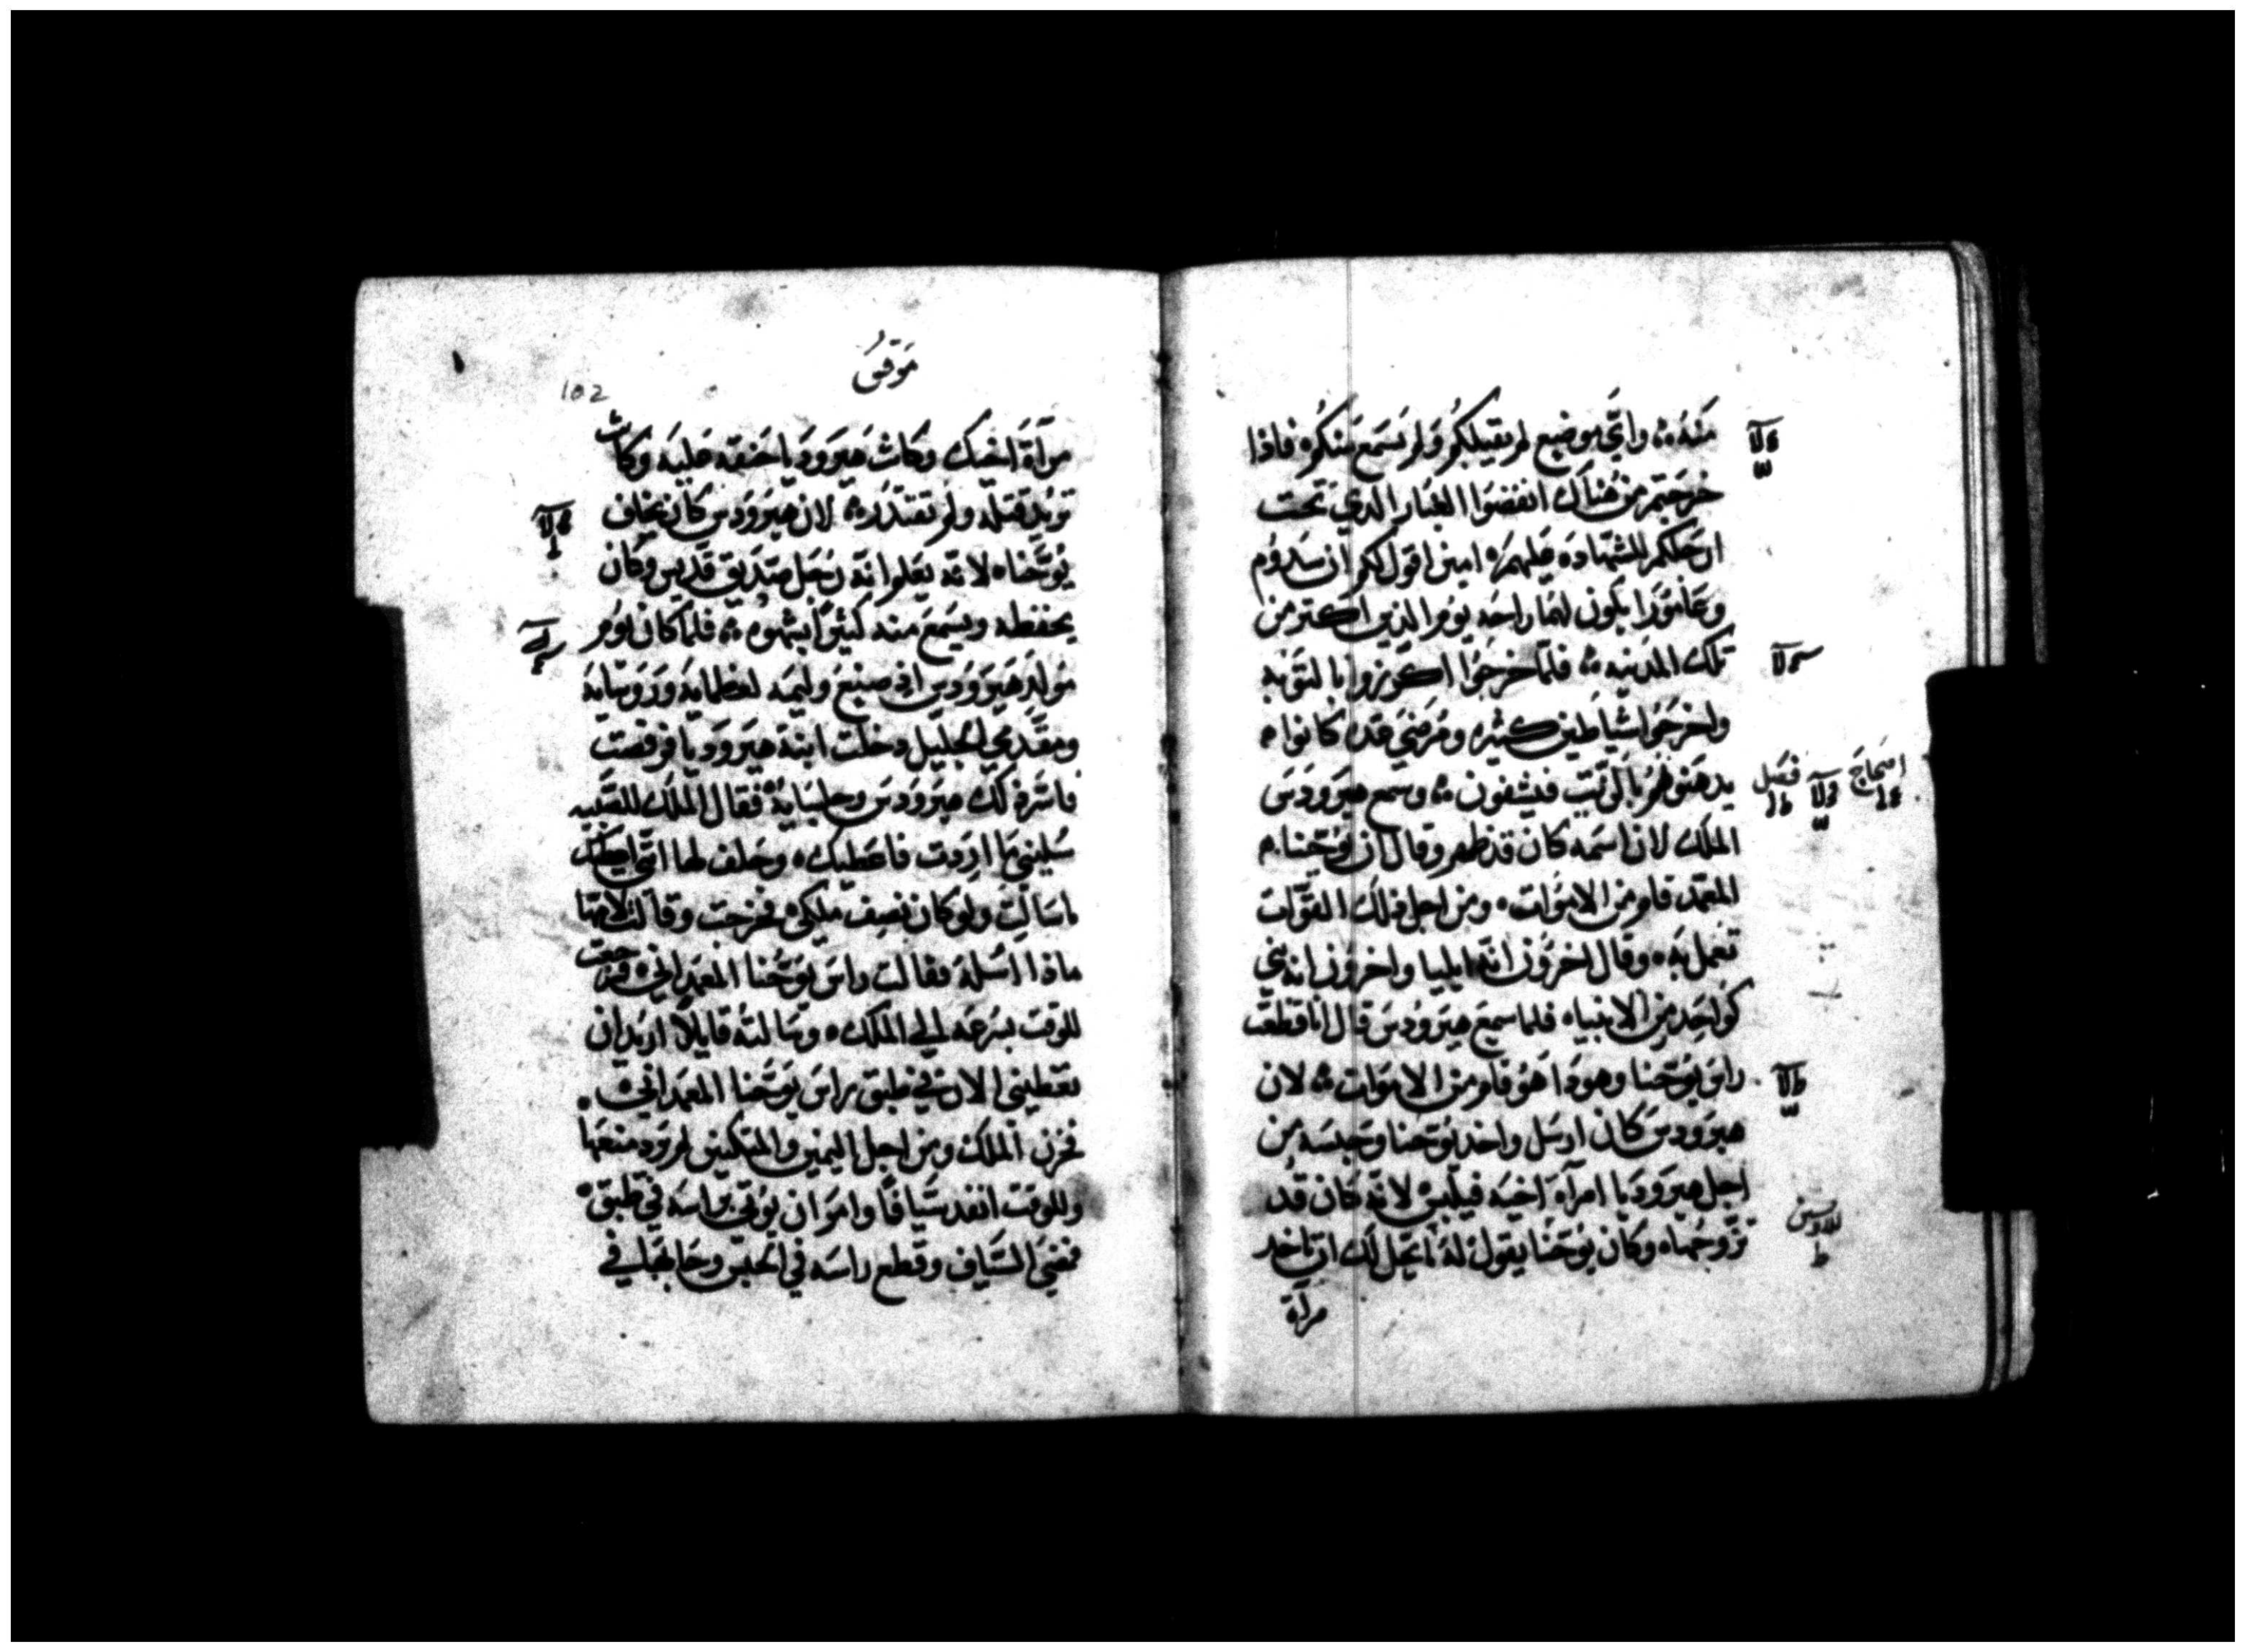 منه ۞ واي موضع لم يقبلكم ولم يسمع منكم ه فاذا
خرجتم من هناك انفضوا الغبار الدي تحت
ارجلكم للشهاده عليهم ه امين اقول لكم ان سدوم
وعامورا يكون لهما راحه يوم الدين اكتر من
تلك المدينه ۞ فلما خرجوا اكرزوا بالتوبه
واخرجوا شياطين كثيره ومرضي قد كانوا ه
يدهنوهم بالزيت فيشفون ۞ وسمع هيرودس
الملك لان اسمه كان قد ظهر وقال ان يوحنا
المعمد قام من الاموات ه ومن اجل ذلك القوات
تعمل به ه وقال اخرون انه ايليا واخرون انه نبي
كواحد من الانبياه فلما سمع هيرودس قال انا قطعت
راس يوحنا وهودا هو قام من الاموات ۞ لان
هيرودس كان ارسل واخد يوحنا وحبسه من
اجل هيروديا امرآة اخيه فيلبس لانه كان قد
تزوجها ه وكان يوحنا يقول له ما يحل لك ان تاخد
مرآة
اصحاح
فصل
مرقس
102
مرآة اخيك وكانت هيروديا حنقه عليه وكانت
تريد قتله ولم تقتدر ۞ لان هيرودس كان يخاف
يوحنا ه لانه يعلم انه رجل صديق قديس وكان
يحفظه ويسمع منه كثيرا بشهوه ۞ فلما كان يوم
مولد هيرودس اذ صنع وليمه لعظمايه وروسايه
ومقدمي الجليل دخلت ابنة هيروديا فرقصت
فاسر ذلك هيرودس وجلسايه فقال الملك للصبيه
سليني ما اردت فاعطيك ه وحلف لها انني اعطيك
ماسالت ولو كان نصف ملكي ه فخرجت وقالت لامها
ماذا اسله فقالت راس يوحنا المعمداني ه فرجعت
للوقت بسرعه الي الملك ه وسالته قايلا اريد ان
تعطيني الان في طبق راس يوحنا المعمداني ه
فحزن الملك ومن اجل اليمين والمتكيين لم يرد منعها
وللوقت انفد سيافا وامر ان يوتي براسه في طبق ه
فمضي السياف وقطع راسه في الحبس وجا بها في